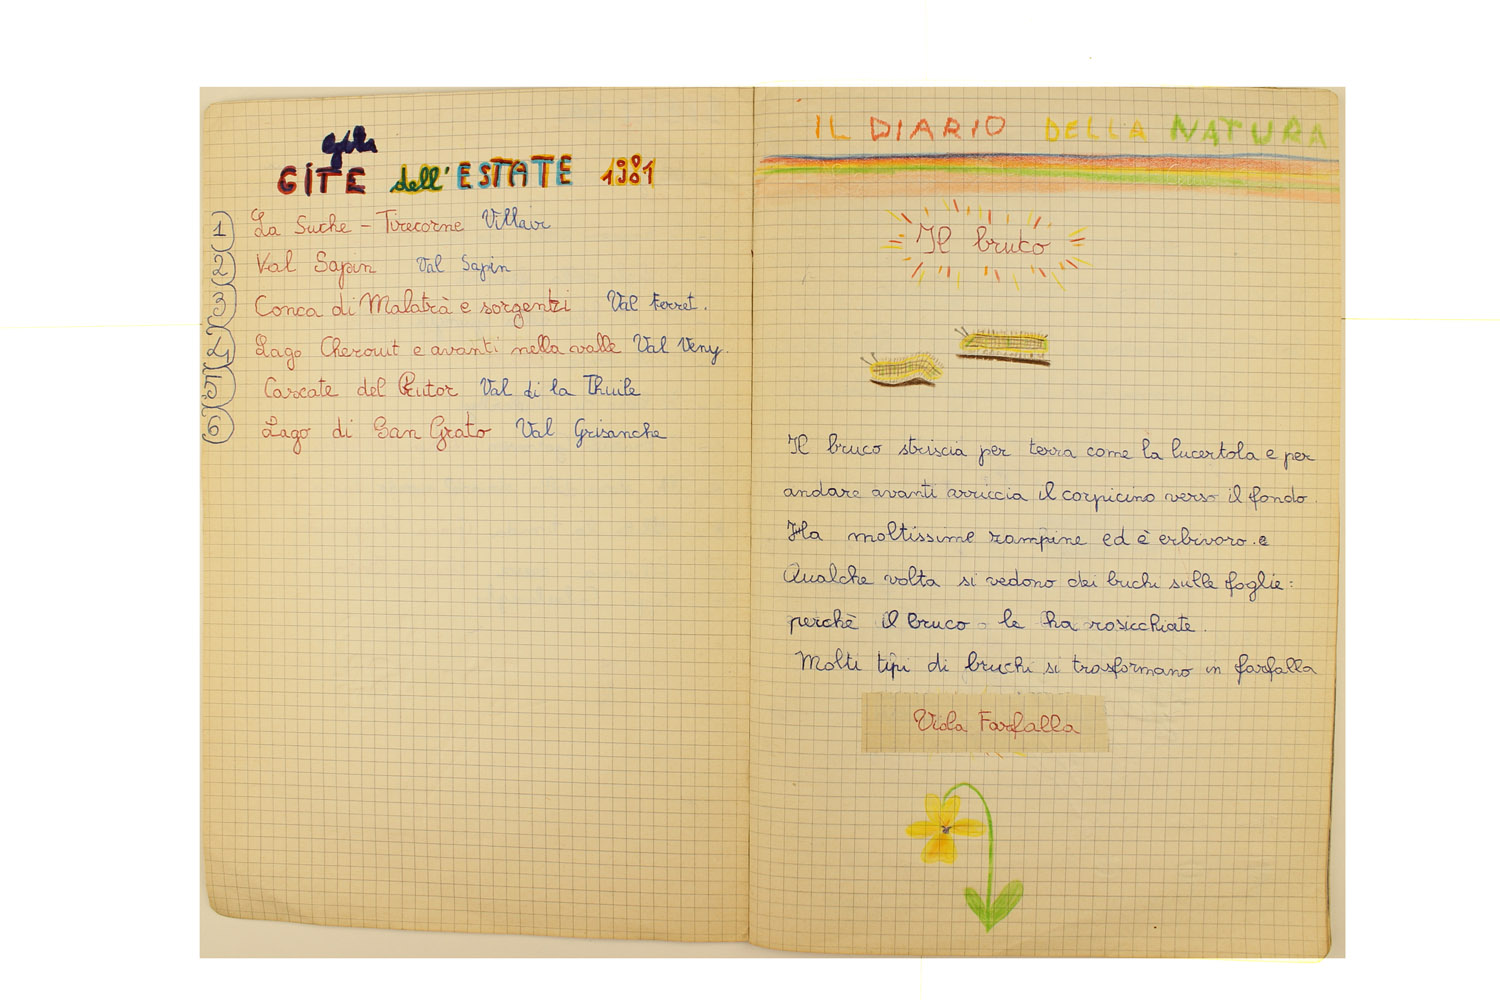 GITE dell'ESTATE 1981
1 La Suche - Tirecorne Villair
2 Val Sapin Val Sapin
3 Conca di Malatrà e sorgenti Val Ferret.
4 Lago Cherouit e avanti nella valle Val Veny.
5 Cascate del Rutor Val di la Thuile
6 Lago di San Grato Val Grisanche
IL DIARIO DELLA NATURA
Il bruco
Il bruco striscia per terra come la lucertola e per
andare avanti arriccia il corpicino verso il fondo.
Ha moltissime zampine ed è erbivoro. e
Qualche volta si vedono dei buchi sulle foglie:
perchè il bruco le ha rosicchiate.
Molti tipi di bruchi si trasformano in farfalla
Viola Farfalla